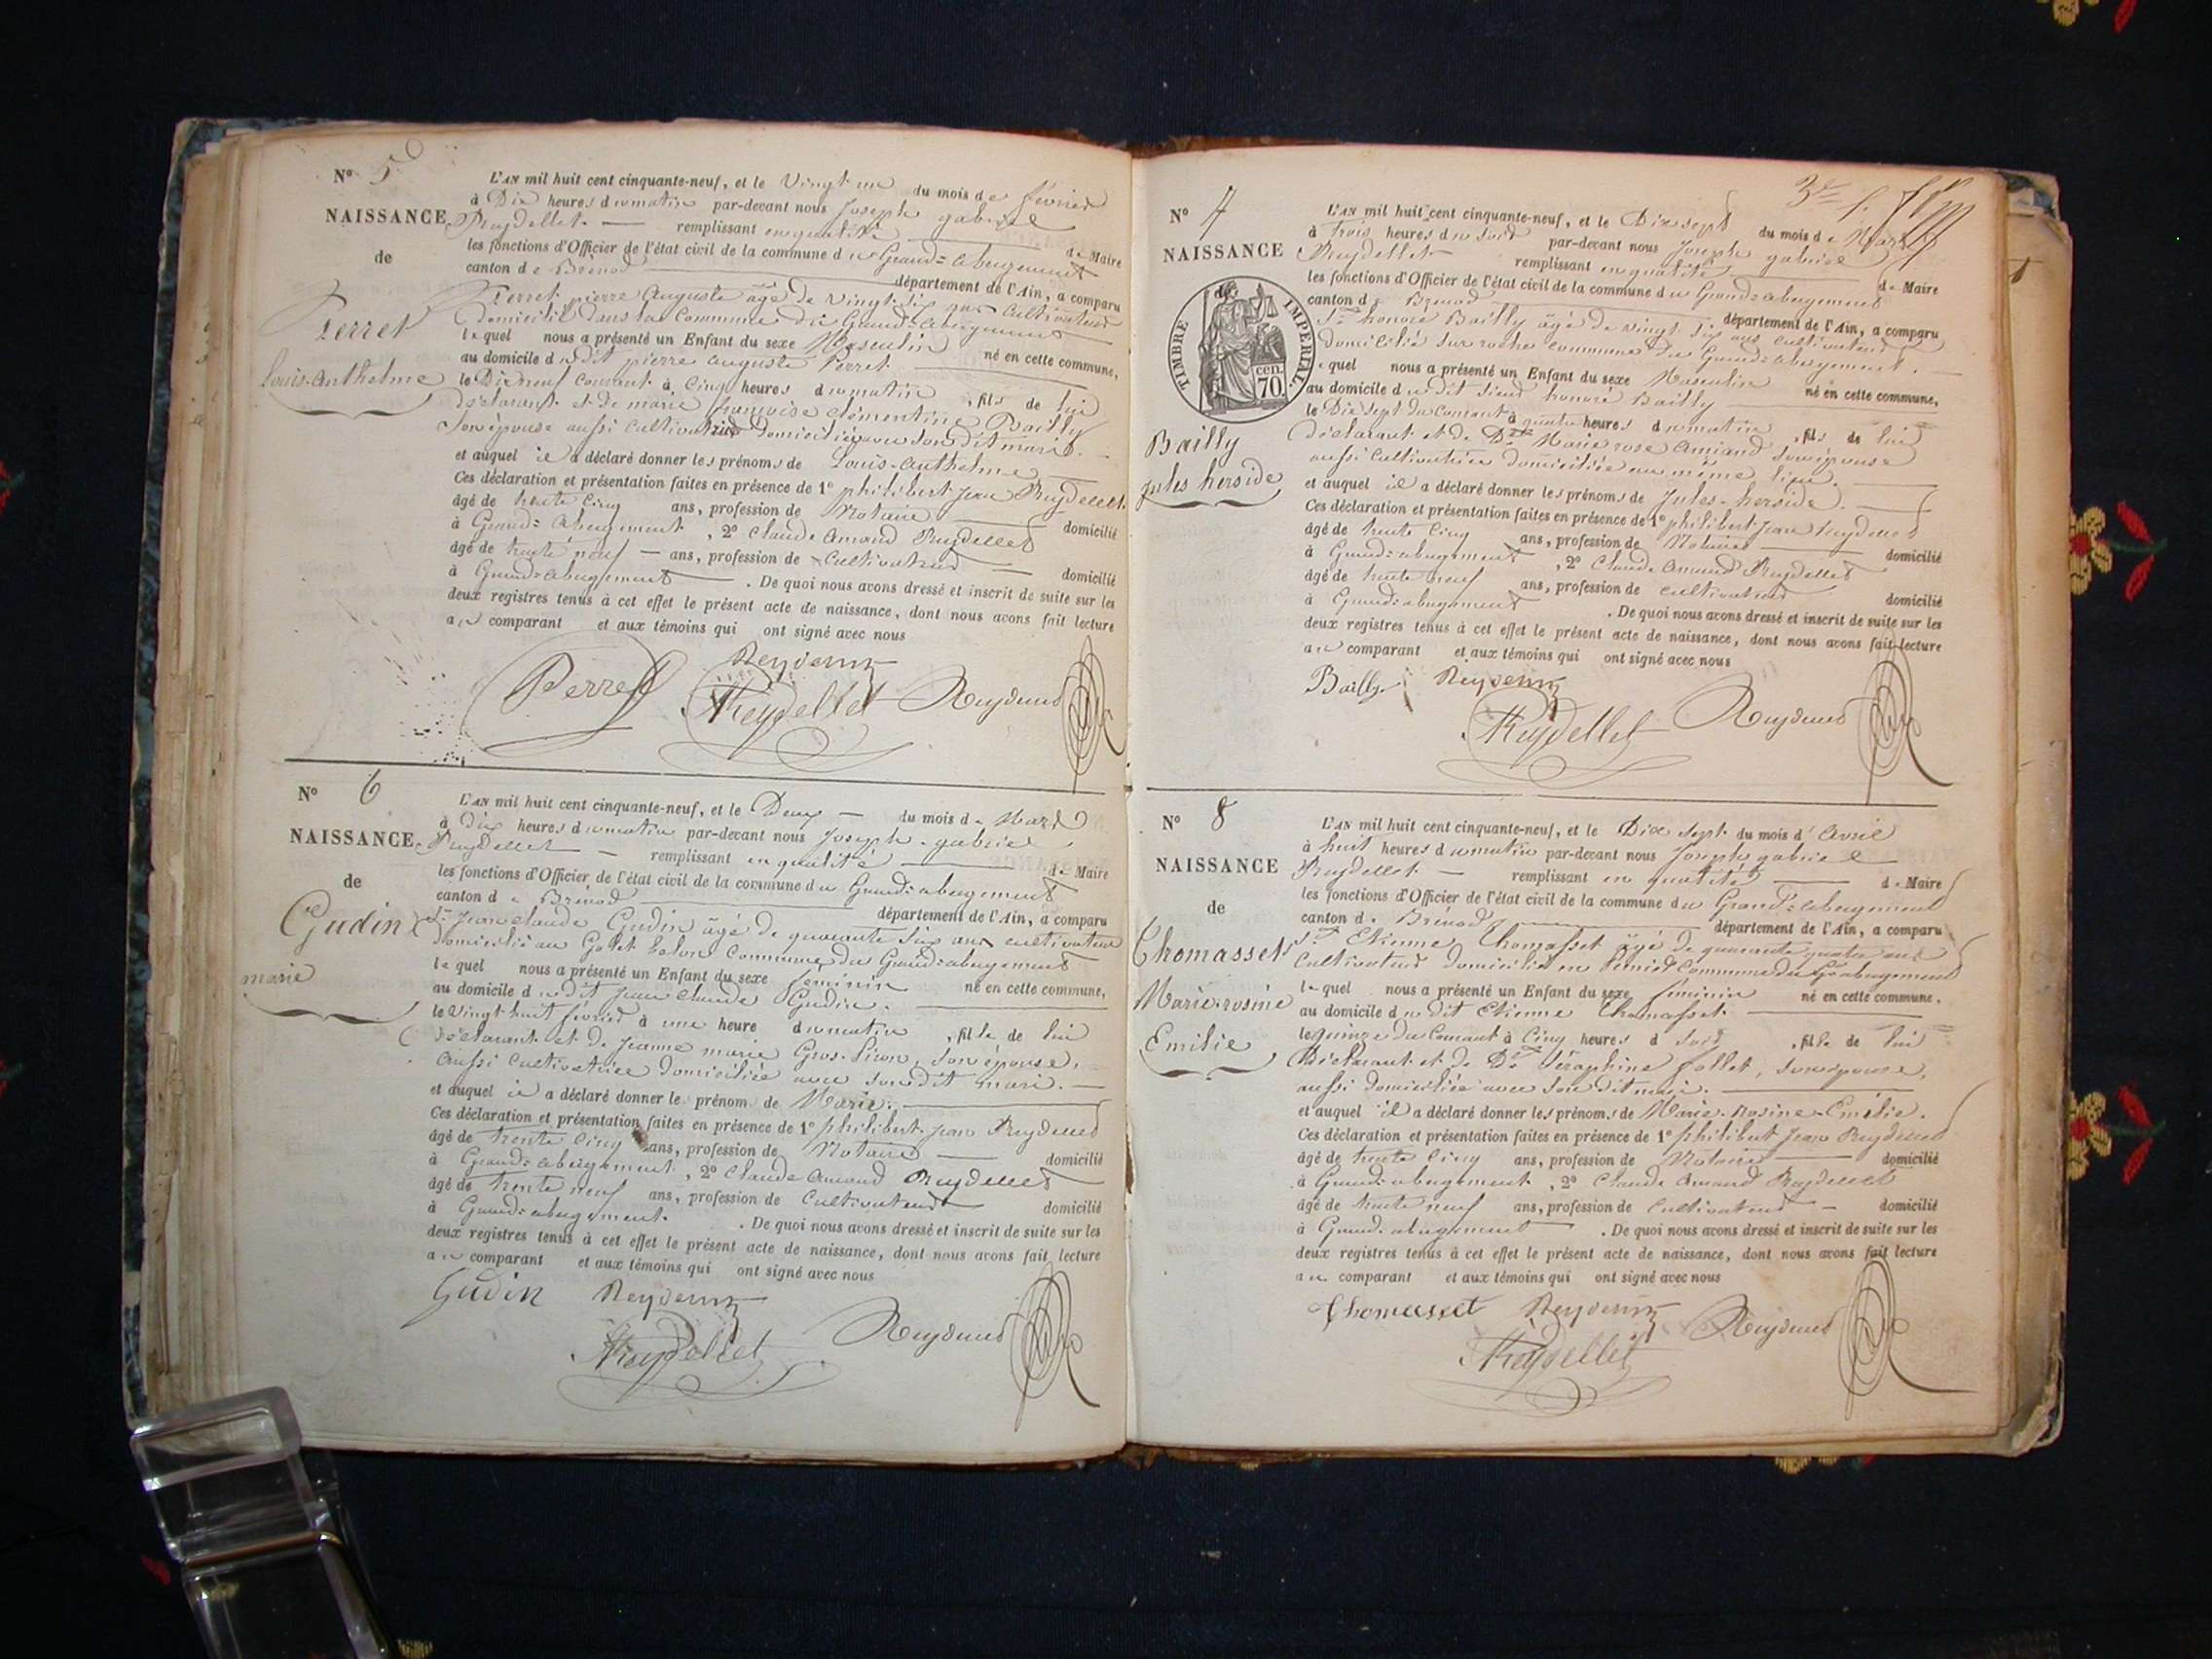 N° 5
NAISSANCE
de
Perret
Louis-Anthelme
L'AN mil huit cent cinquante-neuf, et le Vingt un du mois de février
à Dix heures du matin par-devant nous Joseph gabriel
Reydellet remplissant en qualité de Maire
les fonctions d'Officier de l'état civil de la commune du Grand=abergement
canton de Brénod département de l'Ain, a comparu
Perret pierre Auguste âgé de vingt six ans Cultivateur
domicilié dans la Commune du Grand=abergement
lequel nous a présenté un Enfant du sexe Masculin né en cette commune,
au domicile du dit pierre auguste Perret
le Dix neuf Courant à Cinq heures du matin, fils de lui
déclarant et de marie françoise clémentine Bailly
son épouse aussi cultivatrice domiciliée avec son dit mari.
et auquel il a déclaré donner les prénoms de Louis-Anthelme
Ces déclaration et présentation faites en présence de 1° philibert jean Reydellet
âgé de trente cinq ans, profession de Notaire domicilié
à Grand=abergement, 2° Claude Amand Reydellet
âgé de trente neuf ans, profession de Cultivateur domicilié
à Grand=abergement. De quoi nous avons dressé et inscrit de suite sur les
deux registres tenus à cet effet le présent acte de naissance, dont nous avons fait lecture
au comparant et aux témoins qui ont signé avec nous
Perret Reydellet
N° 6
NAISSANCE
de
Gudin
marie
L'AN mil huit cent cinquante-neuf, et le Deux du mois de Mars
à dix heures du matin par-devant nous Joseph-gabriel
Reydellet remplissant en qualité de Maire
les fonctions d'Officier de l'état civil de la commune du Grand=abergement
canton de Brénod département de l'Ain, a comparu
Sr Jean claude Gudin âgé de quarante six ans cultivateur
domicilié au Commune du Grand=abergement
lequel nous a présenté un Enfant du sexe féminin né en cette commune,
au domicile du dit Jean Claude Gudin.
le Vingt huit février à une heure du matin, fille de lui
déclarant et de Jeanne marie son épouse,
aussi cultivatrice domiciliée avec son dit mari.
et auquel il a déclaré donner le prénom de Marie.
Ces déclaration et présentation faites en présence de 1° philibert jean Reydellet
âgé de trente cinq ans, profession de Notaire domicilié
à Grand=abergement, 2° Claude Amand Reydellet
âgé de trente neuf ans, profession de Cultivateur domicilié
à Grand=abergement. De quoi nous avons dressé et inscrit de suite sur les
deux registres tenus à cet effet le présent acte de naissance, dont nous avons fait lecture
au comparant et aux témoins qui ont signé avec nous
Gudin Reydellet
N° 7
NAISSANCE
de
TIMBRE IMPERIAL.
70 cen.
Bailly
Jules herside
L'AN mil huit cent cinquante-neuf, et le Dix sept du mois de Mars
à trois heures du soir par-devant nous Joseph gabriel
Reydellet remplissant en qualité de Maire
les fonctions d'Officier de l'état civil de la commune du Grand=abergement
canton de Brénod département de l'Ain, a comparu
Sr honoré Bailly âgé de vingt six ans cultivateur
domicilié sur roche commune du Grand=abergement.
lequel nous a présenté un Enfant du sexe Masculin né en cette commune,
au domicile du dit sieur honoré Bailly
le Dix sept du Courant à quatre heures du matin, fils de lui
déclarant et de De Marie rose son épouse
aussi Cultivatrice domiciliée au même lieu.
et auquel il a déclaré donner les prénoms de Jules-herside.
Ces déclaration et présentation faites en présence de 1° philibert jean Reydellet
âgé de trente cinq ans, profession de Notaire domicilié
à Grand=abergement, 2° Claude Amand Reydellet
âgé de trente neuf ans, profession de cultivateur domicilié
à Grand=abergement. De quoi nous avons dressé et inscrit de suite sur les
deux registres tenus à cet effet le présent acte de naissance, dont nous avons fait lecture
au comparant et aux témoins qui ont signé avec nous
Bailly Reydellet
N° 8
NAISSANCE
de
Thomasset
Marie-rosine
Emilie
L'AN mil huit cent cinquante-neuf, et le Dix sept du mois d'avril
à huit heures du matin par-devant nous Joseph gabriel
Reydellet remplissant en qualité de Maire
les fonctions d'Officier de l'état civil de la commune du Grand=abergement
canton de Brénod département de l'Ain, a comparu
Sr Etienne Thomasset âgé de quarante quatre ans
Cultivateur domicilié commune du Gd abergement
lequel nous a présenté un Enfant du sexe féminin né en cette commune.
au domicile du dit Etienne Thomasset
le quinze du Courant à Cinq heures du soir, fille de lui
Déclarant et de De Séraphine follet, son épouse,
aussi domiciliée avec son dit mari.
et auquel il a déclaré donner les prénoms de Marie-Rosine-Emélie.
Ces déclaration et présentation faites en présence de 1° philibert jean Reydellet
âgé de trente cinq ans, profession de Notaire domicilié
à Grand=abergement, 2° Claude Amand Reydellet
âgé de trente neuf ans, profession de Cultivateur domicilié
à Grand=abergement. De quoi nous avons dressé et inscrit de suite sur les
deux registres tenus à cet effet le présent acte de naissance, dont nous avons fait lecture
au comparant et aux témoins qui ont signé avec nous
Thomasset Reydellet